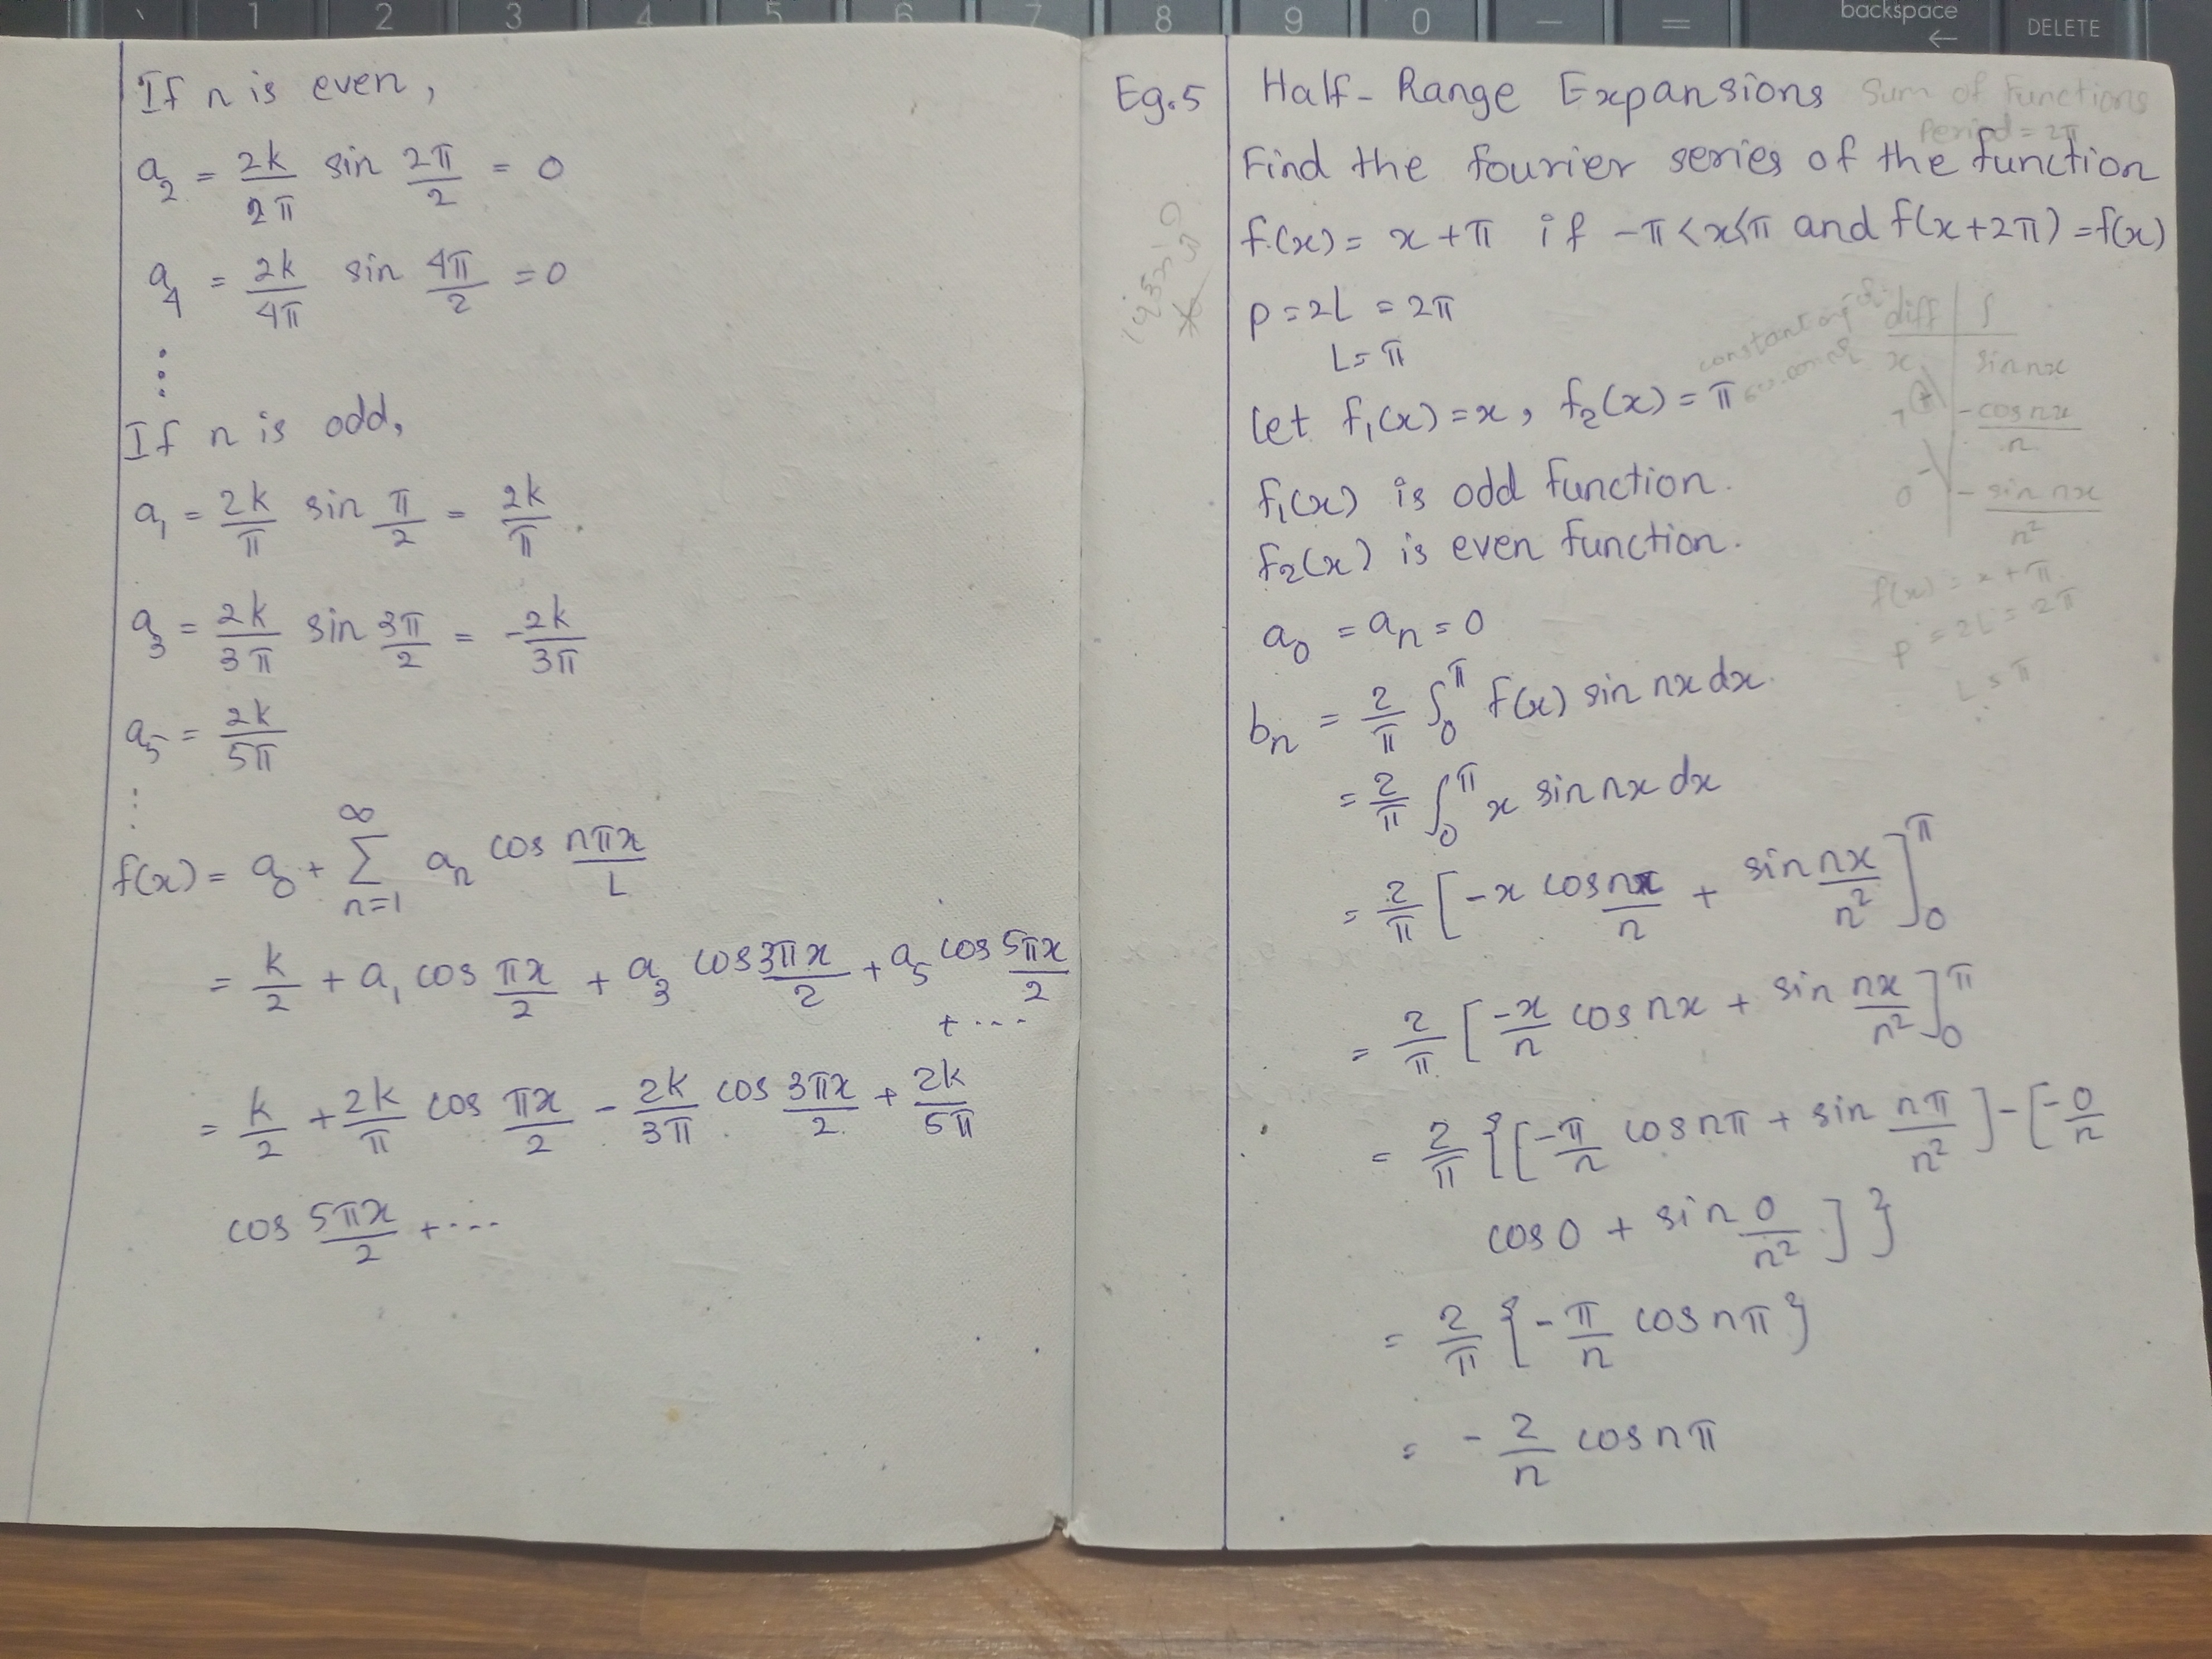 ` 1 2 3 4 5 6 7 8 9 0 – = backspace ← DELETE
If n is even,
a₂ = 2k/2π sin 2π/2 = 0
a₄ = 2k/4π sin 4π/2 = 0
⋮
If n is odd,
a₁ = 2k/π sin π/2 = 2k/π
a₃ = 2k/3π sin 3π/2 = -2k/3π
a₅ = 2k/5π
⋮
f(x) = a₀ + ∑_{n=1}^{∞} aₙ cos nπx/L
= k/2 + a₁ cos πx/2 + a₃ cos 3πx/2 + a₅ cos 5πx/2
+ ....
= k/2 + 2k/π cos πx/2 - 2k/3π cos 3πx/2 + 2k/5π
cos 5πx/2 + ....
Eg.5 Half-Range Expansions Sum of Functions
Period = 2π
Find the fourier series of the function
f(x) = x + π if -π < x < π and f(x+2π) = f(x)
p = 2L = 2π
L = π
Let f₁(x) = x, f₂(x) = π
f₁(x) is odd function.
f₂(x) is even function.
a₀ = aₙ = 0
bₙ = 2/π ∫₀^π f(x) sin nx dx.
= 2/π ∫₀^π x sin nx dx
= 2/π [-x cos nx/n + sin nx/n²]₀^π
= 2/π [-x/n cos nx + sin nx/n²]₀^π
= 2/π {[-π/n cos nπ + sin nπ/n²] - [-0/n
cos 0 + sin 0/n²]}
= 2/π {-π/n cos nπ}
= - 2/n cos nπ
diff | ∫
x | sin nx
-cos nx/n
0 | - sin nx/n²
f(x) = x + π
p = 2L = 2π
L = π